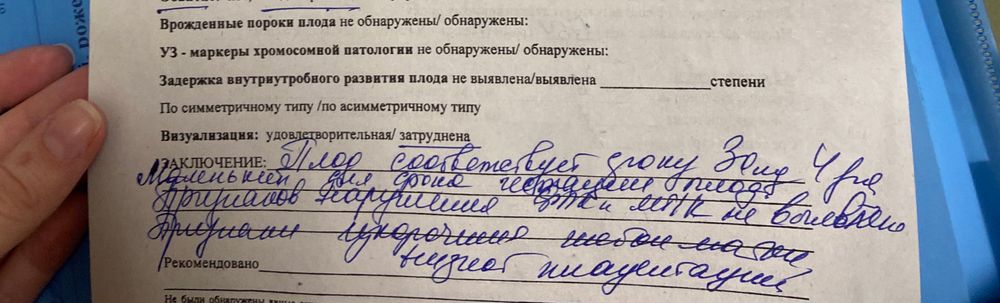 Врожденные пороки плода не обнаружены/ обнаружены:
УЗ - маркеры хромосомной патологии не обнаружены/ обнаружены:
Задержка внутриутробного развития плода не выявлена/выявлена ______________степени
По симметричному типу /по асимметричному типу
Визуализация: удовлетворительная/ затруднена
ЗАКЛЮЧЕНИЕ: Плод соответствует сроку 30 нед 4 дня
Маленький для срока гестации плод
Признаков нарушения ФПК и МПК не выявлено
Признаки укорочения шейки матки
Рекомендовано
низкой плацентации
Не были обнаружены